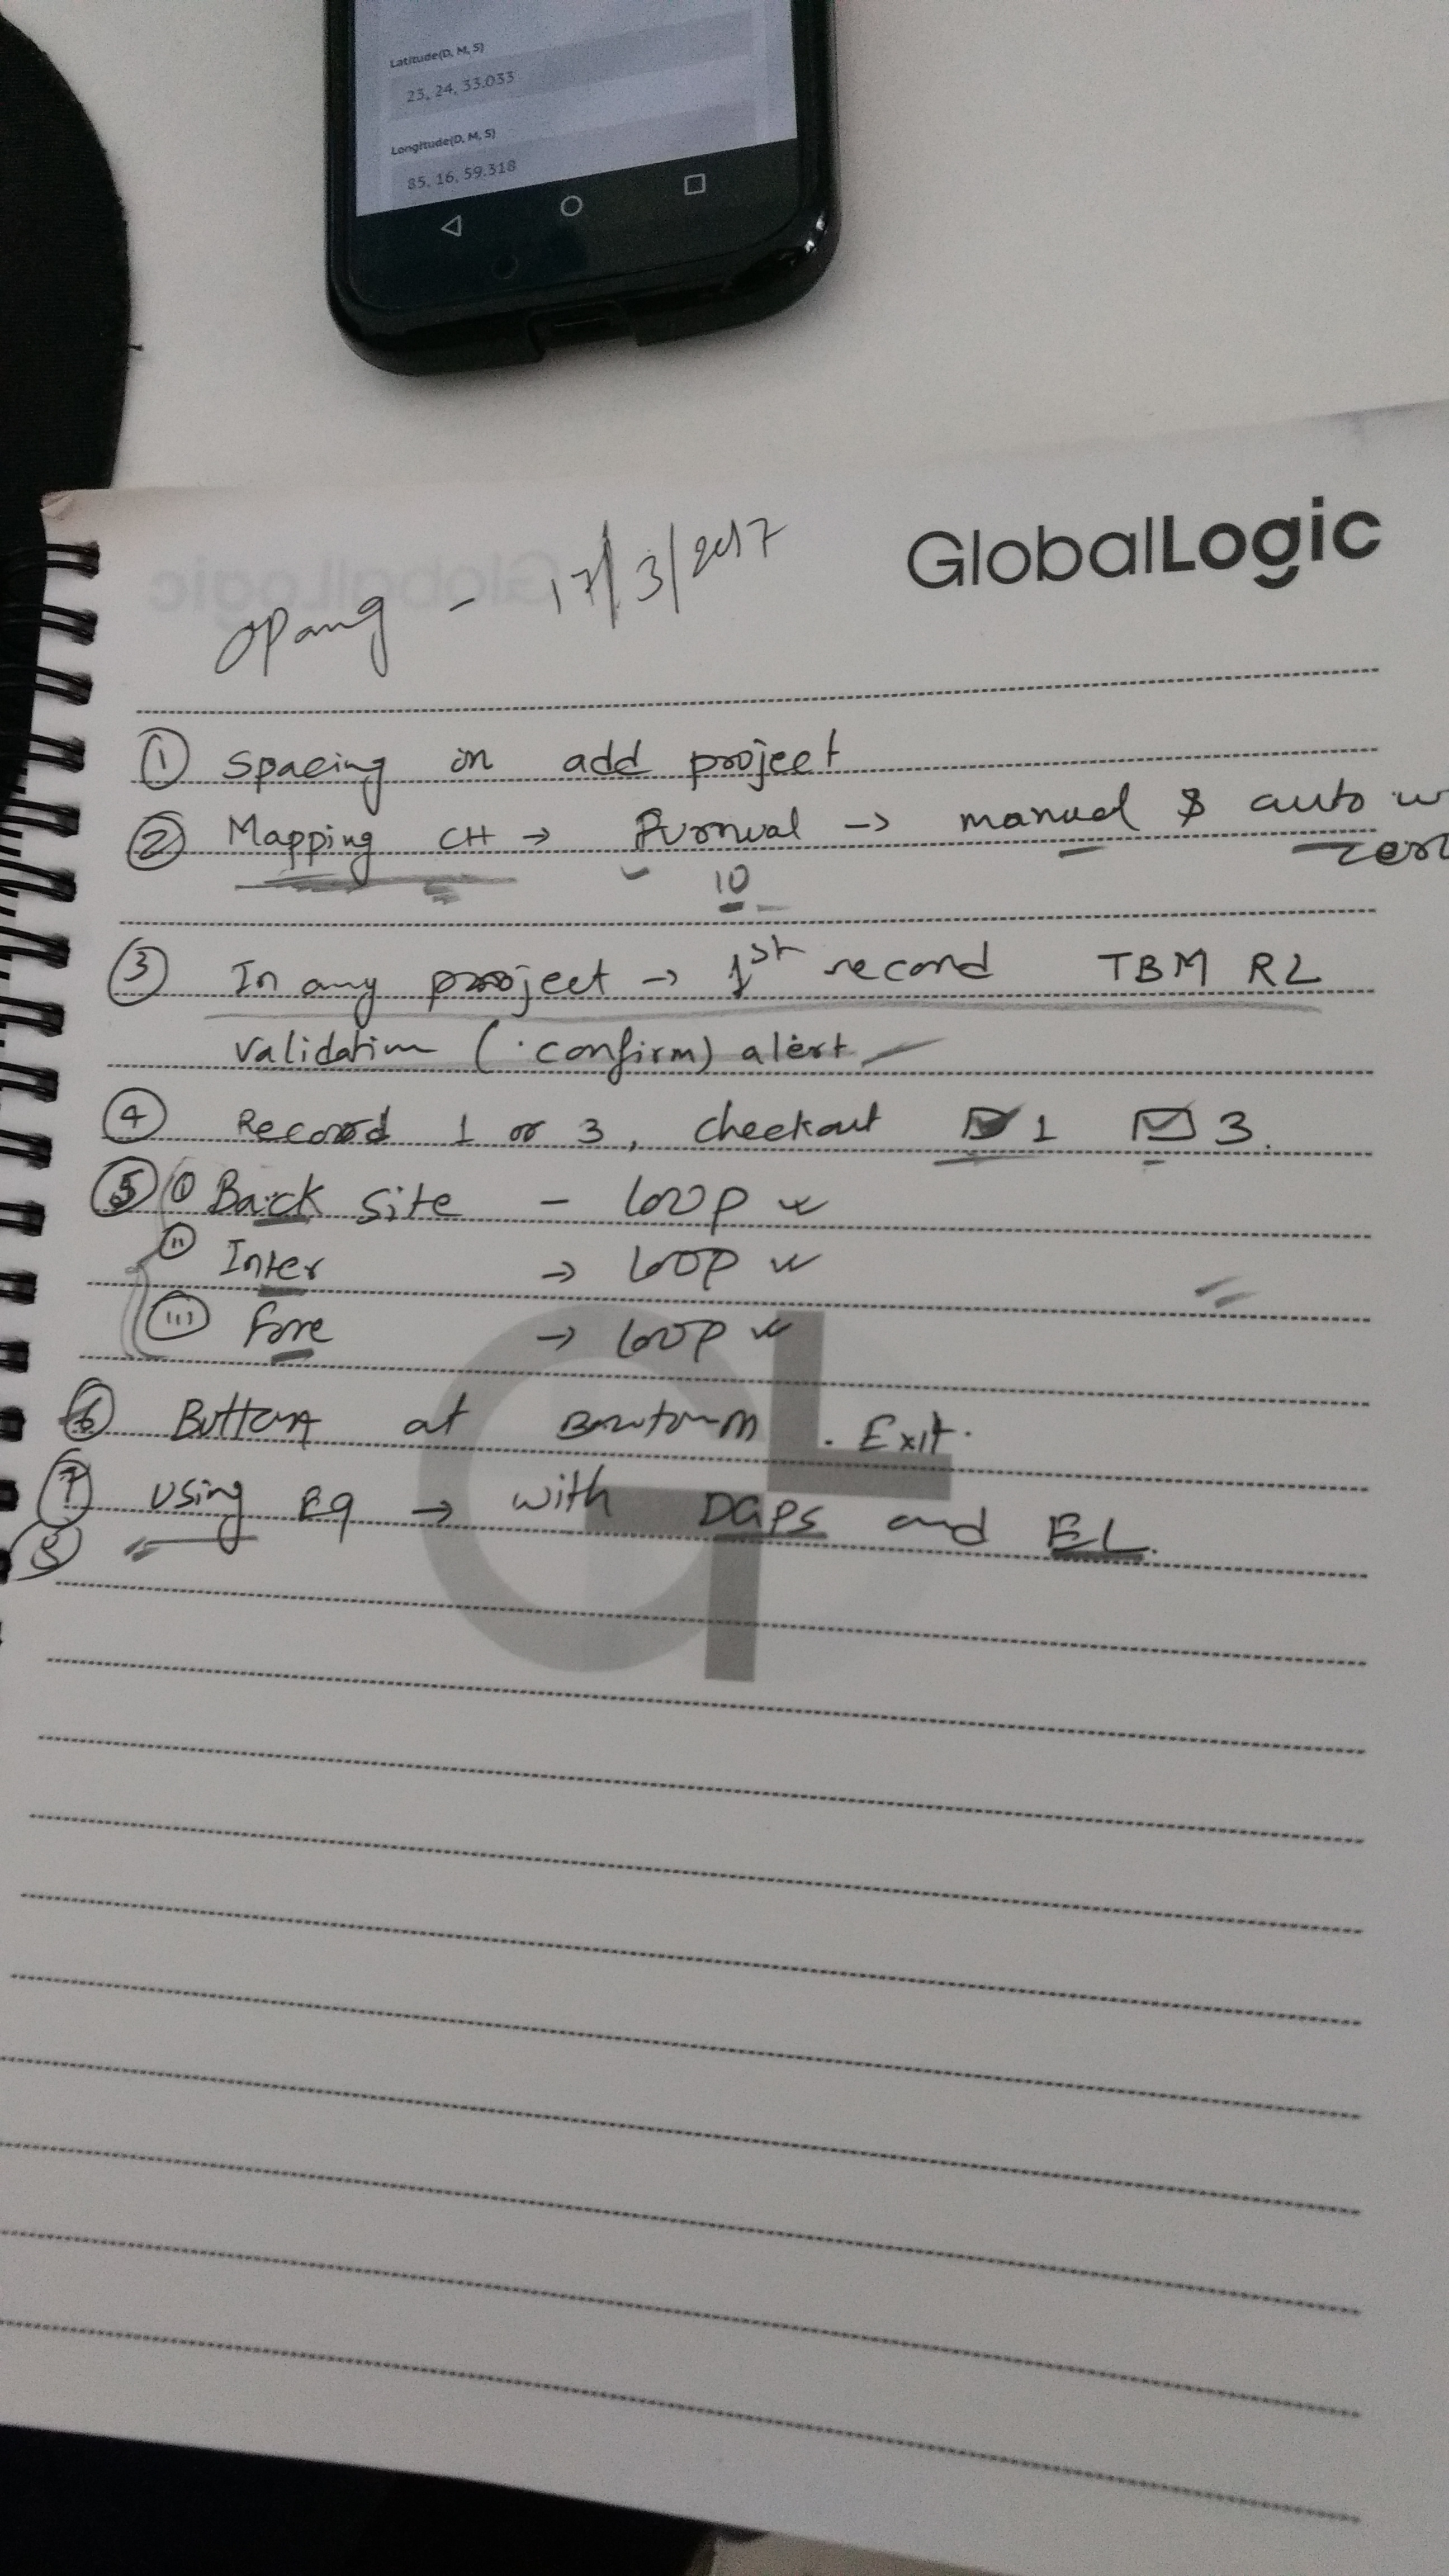 Latitude(D, M, S)
23, 24, 33.033
Longitude(D, M, S)
85, 16, 59.318
GlobalLogic
opang - 17/3/2017
① Spacing in add project
② Mapping CH → → manual & auto
10
③ In any project → 1st record TBM RL
validation (confirm) alert
④ Record 1 or 3, checkout ☑ 1 ☑ 3.
⑤ (i) Back site - loop
(ii) Inter → loop
(iii) fore → loop
⑥ Buttons at . Exit.
⑦ using Eq → with DGPS and EL.
⑧